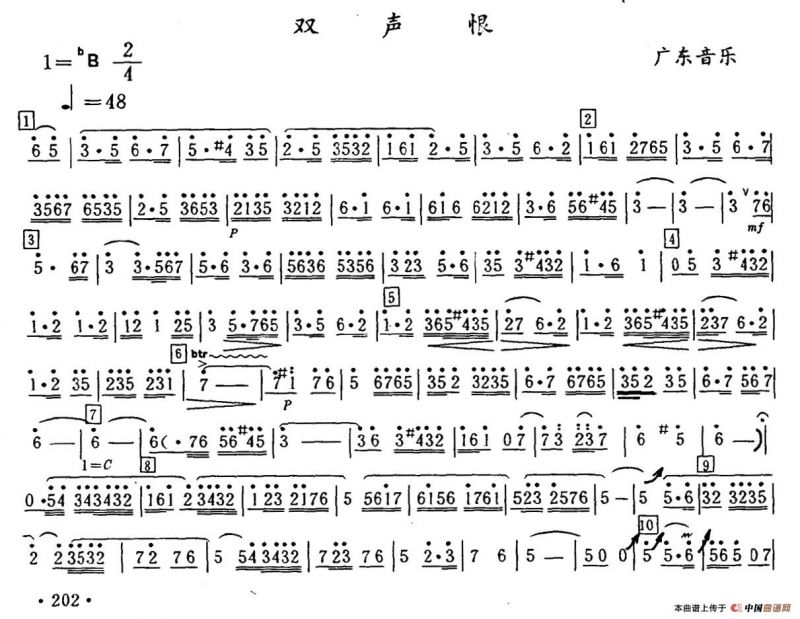 双 声 恨
1=ᵇB 2/4
广东音乐
♩=48
1 2
6 5 | 3·5 6·7 | 5·#4 35 | 2·5 3532 | 161 2·5 | 3·5 6·2 | 161 2765 | 3·5 6·7
3567 6535 | 2·5 3653 | 2135 3212 | 6·1 6·1 | 616 6212 | 3·6 56#45 | 3 — | 3 — | 3 ∨ 76
p mf
3 4
5· 67 | 3 3·567 | 5·6 3·6 | 5636 5356 | 323 5·6 | 35 3#432 | 1·6 1 | 05 3#432
5
1·2 1·2 | 12 1 25 | 3 5·765 | 3·5 6·2 | 1·2 365#435 | 27 6·2 | 1·2 365#435 | 237 6·2
6 btr
1·2 35 | 235 231 | 7 — | 7#1 76 | 5 6765 | 352 3235 | 6·7 6765 | 352 35 | 6·7 567
p
7
6 — | 6 — | 6(·76 56#45 | 3 — | 36 3#432 | 161 07 | 73 237 | 6 #5 | 6 —)
1=C 8
0·54 343432 | 161 2 3432 | 123 2176 | 5 5617 | 6156 1761 | 523 2576 | 5 — | 5 5·6 | 32 3235
9
2 23532 | 72 76 | 5 543432 | 723 76 | 5 2·3 | 7 6 | 5 — | 500 | 5 5·6 | 565 07
10
·202·
本曲谱上传于 中国曲谱网